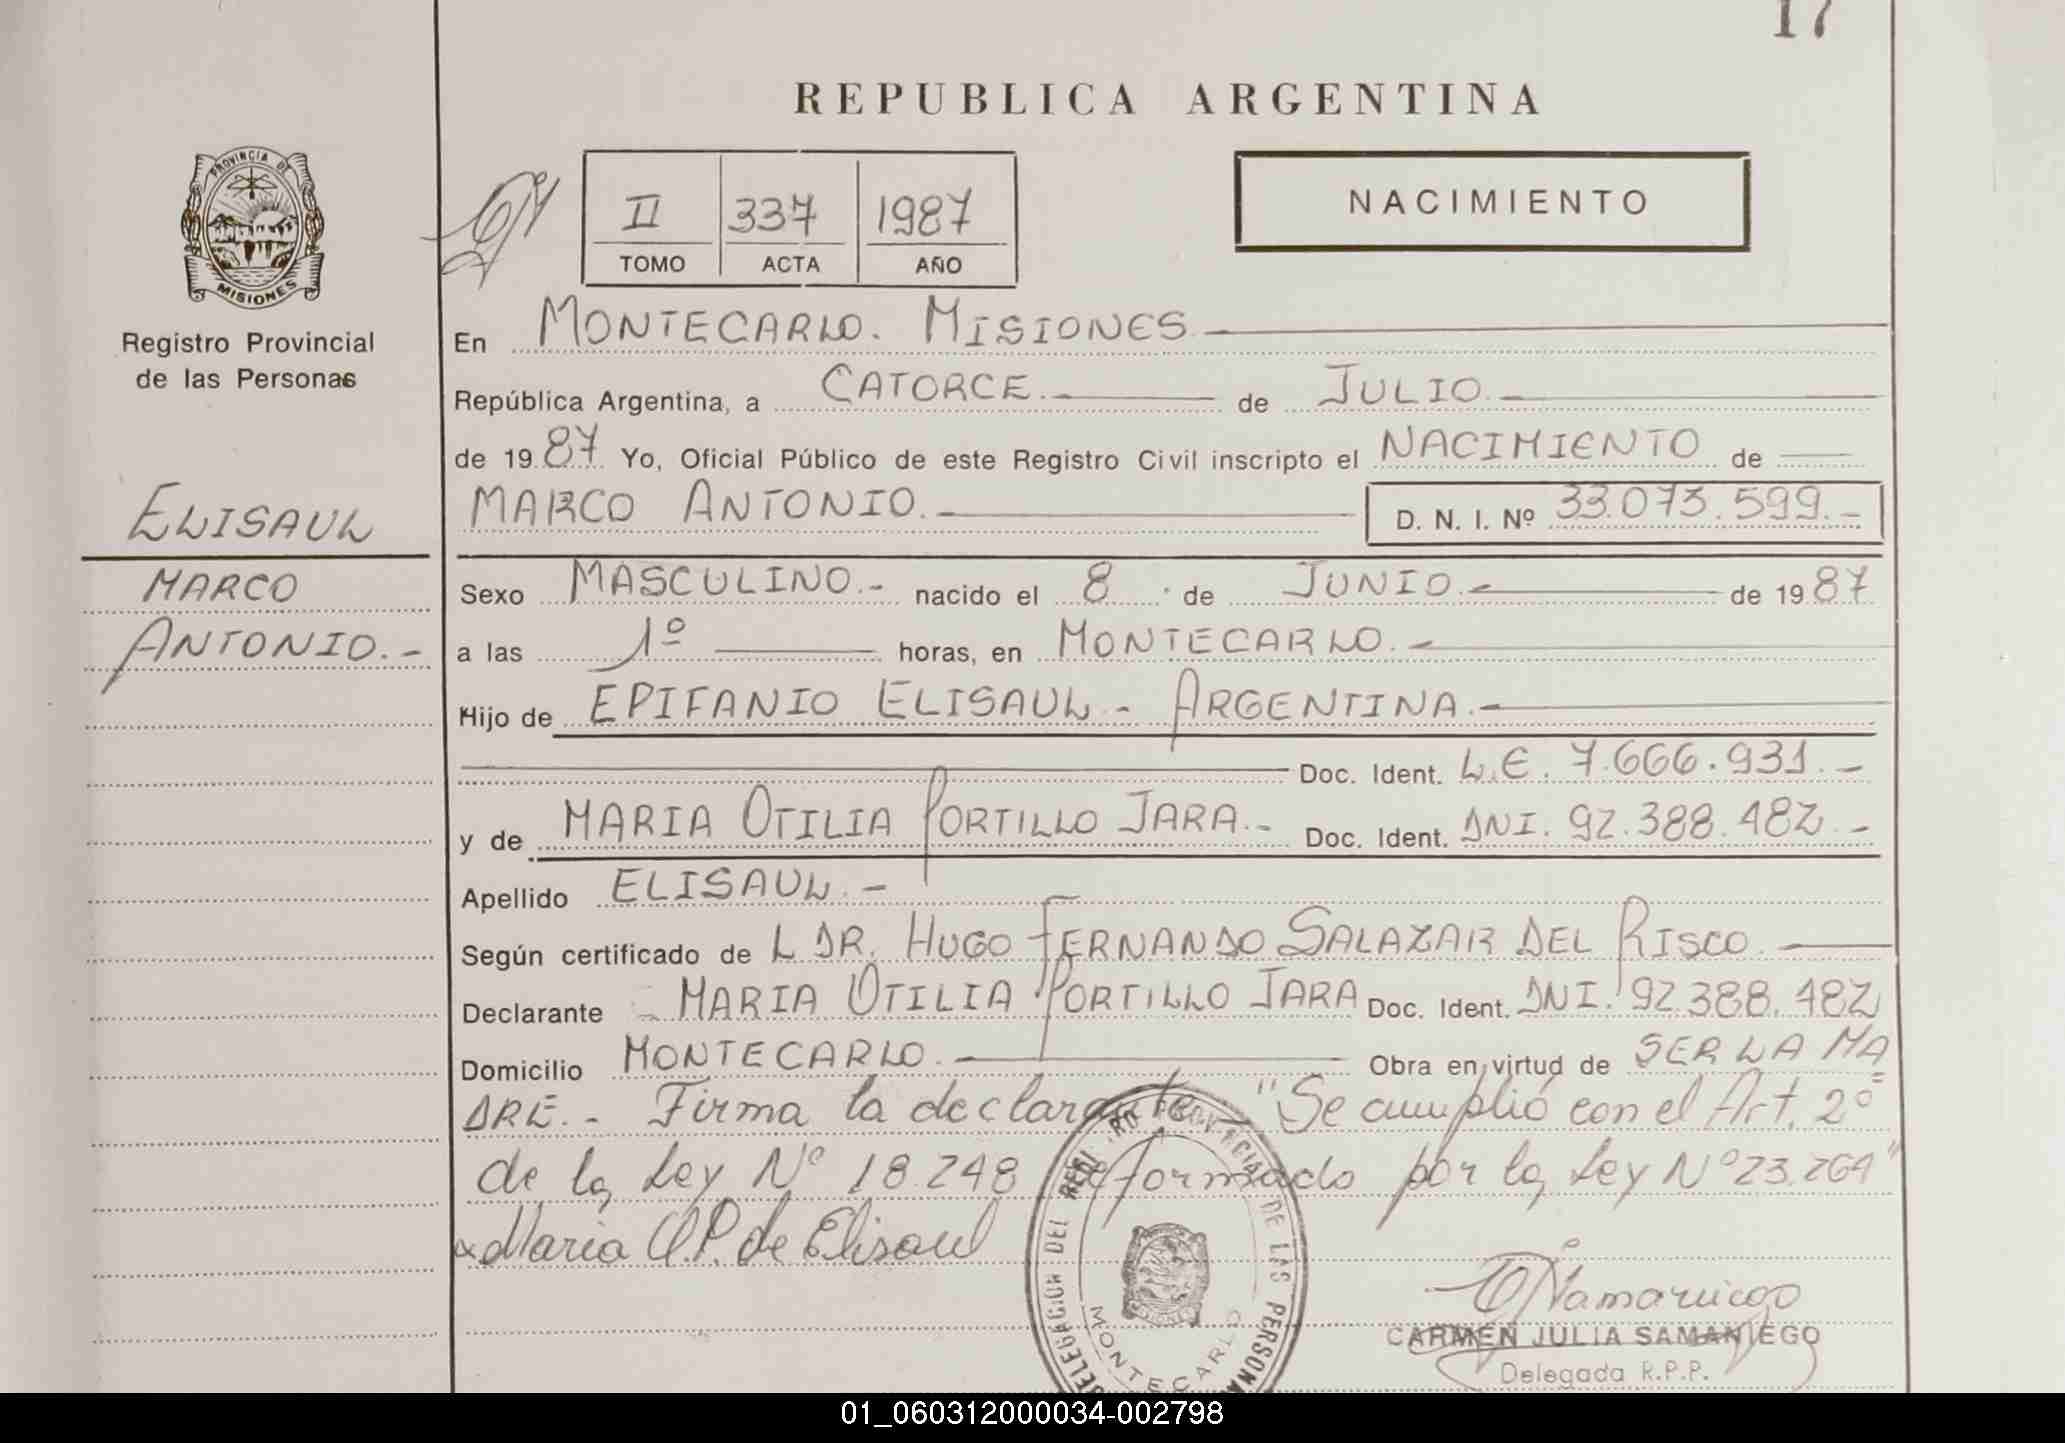 17
REPUBLICA ARGENTINA
PROVINCIA DE
MISIONES
Registro Provincial
de las Personas
II 337 1987
TOMO ACTA AÑO
NACIMIENTO
En MONTECARLO. MISIONES
República Argentina, a CATORCE. de JULIO.
de 1987 Yo, Oficial Público de este Registro Civil inscripto el NACIMIENTO de
MARCO ANTONIO. D. N. I. Nº 33.073.599.-
ELISAUL
MARCO
ANTONIO.-
Sexo MASCULINO.- nacido el 8 de JUNIO.- de 1987
a las 1º horas, en MONTECARLO.-
Hijo de EPIFANIO ELISAUL - ARGENTINA.-
Doc. Ident. L.E. 7.666.931.-
y de MARIA OTILIA PORTILLO JARA.- Doc. Ident. DNI. 92.388.482.-
Apellido ELISAUL.-
Según certificado de L DR. HUGO FERNANDO SALAZAR DEL RISCO.
Declarante MARIA OTILIA PORTILLO JARA Doc. Ident. DNI. 92.388.482
Domicilio MONTECARLO.- Obra en virtud de SER LA MA
DRE.- Firma la declarante "Se cumplió con el Art. 2º
de la Ley Nº 18.248 reformado por la Ley Nº 23.264"
Maria O.P. de Elisaul
DELEGACION DEL REGISTRO PROVINCIAL DE LAS PERSONAS
MONTECARLO
CARMEN JULIA SAMANIEGO
Delegada R.P.P.
01_060312000034-002798